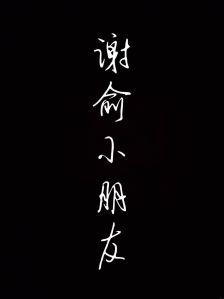 谢俞小朋友